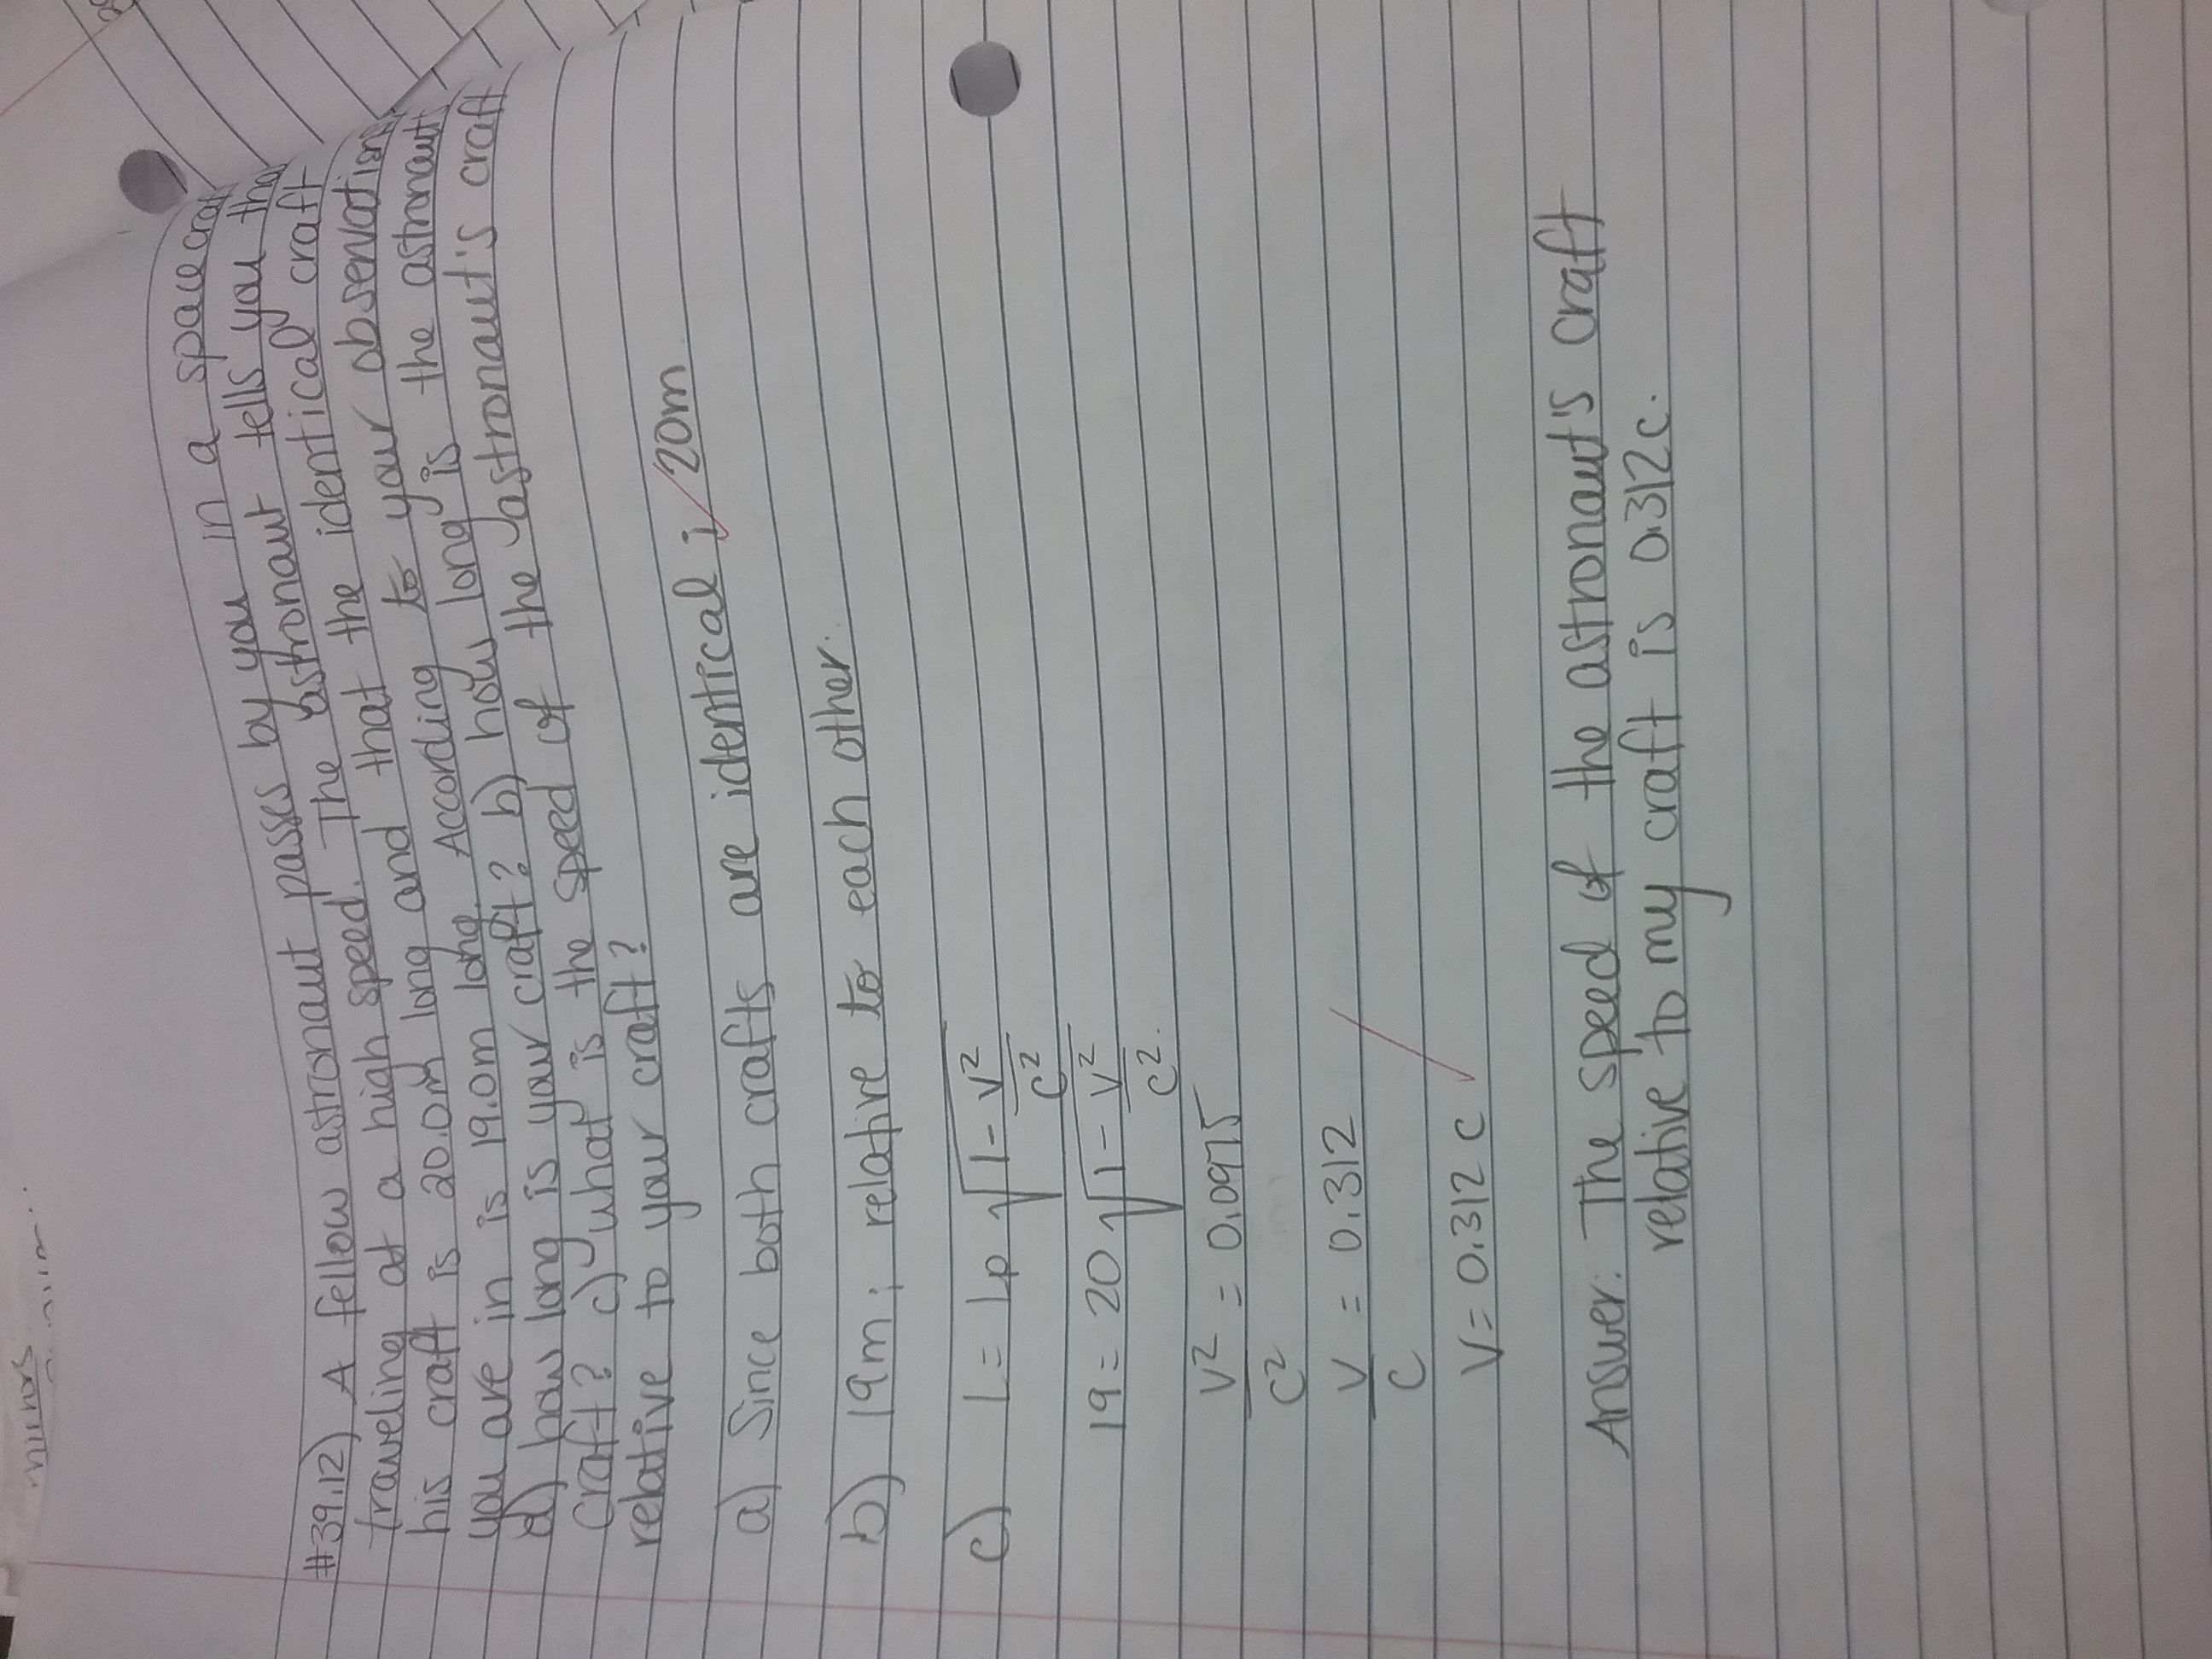 #39.12) A fellow astronaut passes by you in a spacecraft
traveling at a high speed. The astronaut tells you that
his craft is 20.0m long and that the identical craft
you are in is 19.0m long. According to your observations
a) how long is your craft? b) how long is the astronaut's
craft? c) what is the speed of the astronaut's craft
relative to your craft?
a) Since both crafts are identical; 20m
b) 19m; relative to each other.
c) L = Lp √1 - v²/c²
19 = 20 √1 - v²/c².
v²/c² = 0.0975
v/c = 0.312
V = 0.312 c
Answer: The speed of the astronaut's craft
relative to my craft is 0.312c.